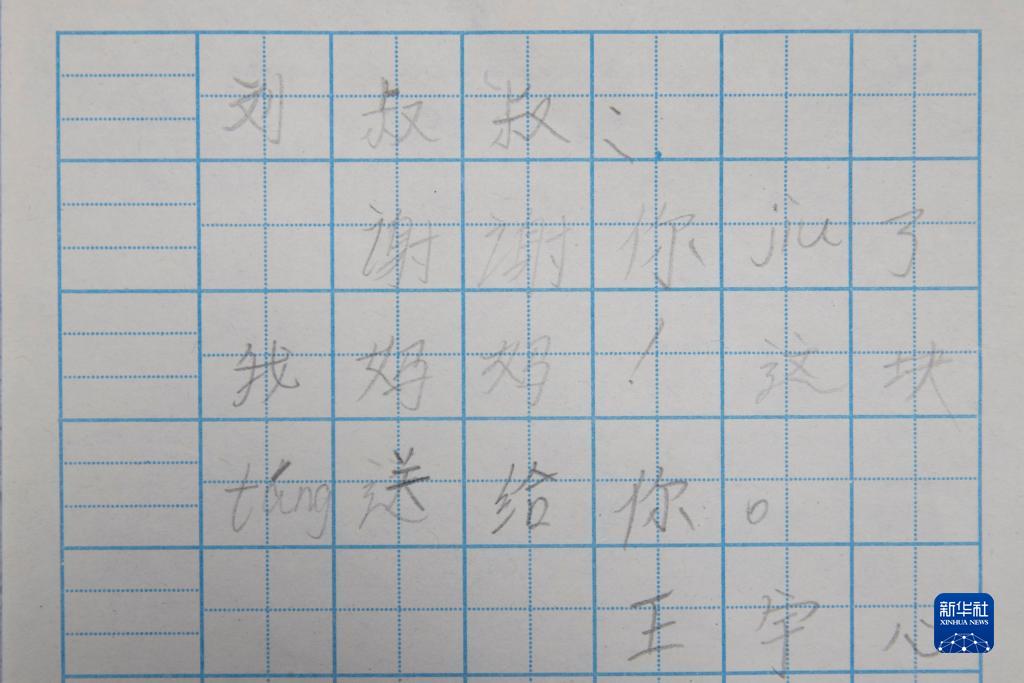 刘叔叔：
谢谢你jiu了
我妈妈！这块
táng送给你。
王宇心
新华社
XINHUA NEWS